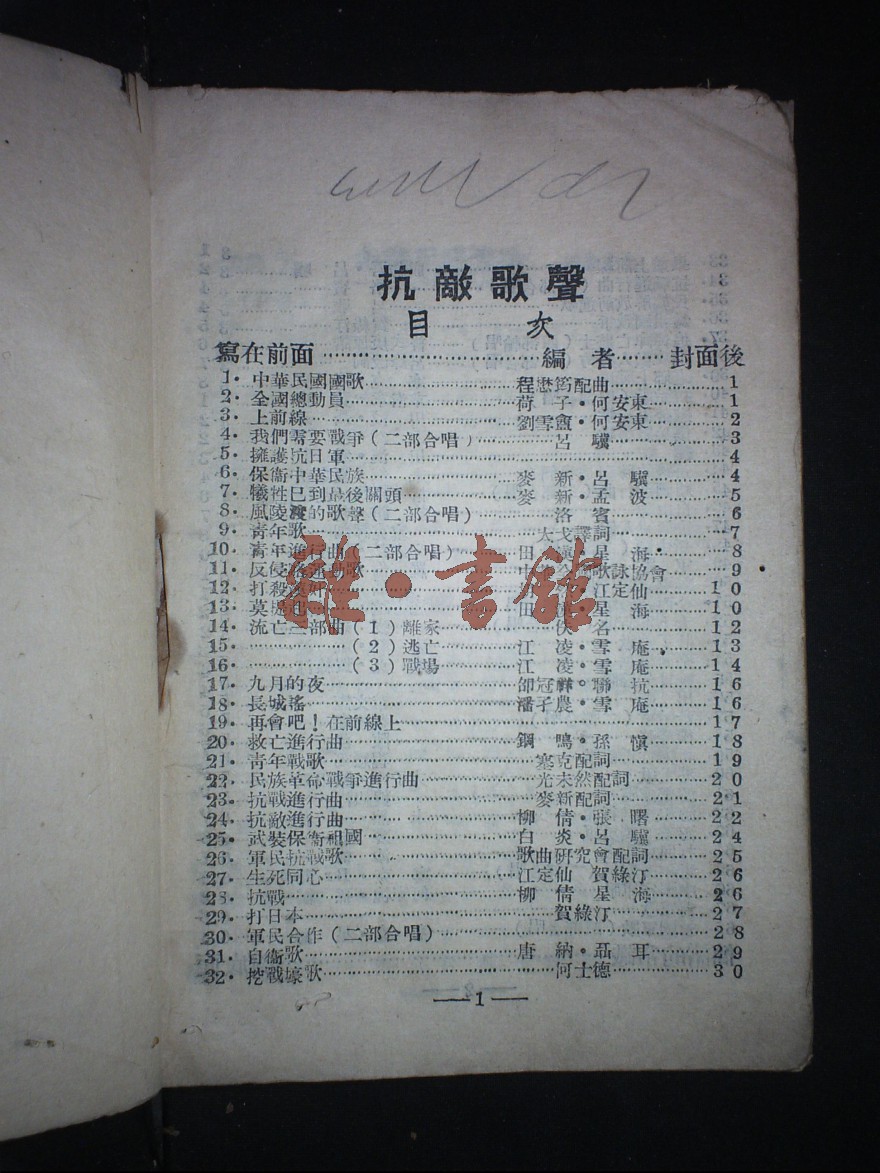 抗敵歌聲
目 次
寫在前面 編者 封面後
1. 中華民國國歌 程懋筠配曲 1
2. 全國總動員 荷子·何安東 1
3. 上前線 劉雪盦·何安東 2
4. 我們需要戰爭（二部合唱） 呂驥 3
5. 擁護抗日軍 4
6. 保衞中華民族 麥新·呂驥 4
7. 犧牲已到最後關頭 麥新·孟波 5
8. 風陵渡的歌聲（二部合唱） 洛賓 6
9. 青年歌 太戈譯詞 7
10. 青年進行曲（二部合唱） 田 星海 8
11. 反侵 動歌 歌詠協會 9
12. 打殺 江定仙 10
13. 莫 田 星海 10
14. 流亡三部曲（1）離家 佚名 12
15. （2）逃亡 江凌·雪庵 13
16. （3）戰場 江凌·雪庵 14
17. 九月的夜 邵冠祥·聯抗 16
18. 長城謠 潘孑農·雪庵 16
19. 再會吧！在前線上 17
20. 救亡進行曲 鋼鳴·孫愼 18
21. 靑年戰歌 塞克配詞 19
22. 民族革命戰爭進行曲 光未然配詞 20
23. 抗戰進行曲 麥新配詞 21
24. 抗敵進行曲 柳倩·張曙 22
25. 武裝保衞祖國 白炎·呂驥 24
26. 軍民抗戰歌 歌曲硏究會配詞 25
27. 生死同心 江定仙 賀綠汀 26
28. 抗戰 柳倩 星海 26
29. 打日本 賀綠汀 27
30. 軍民合作（二部合唱） 28
31. 自衞歌 唐納·聶耳 29
32. 挖戰壕歌 何士德 30
—1—
雜·書館